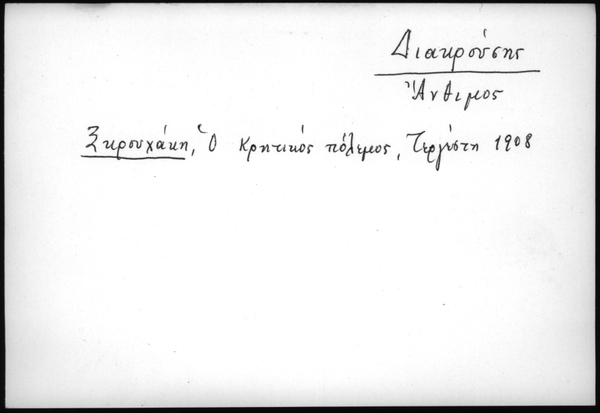 Διακρούσης
Ἄνθιμος
Ξηρουχάκη, Ὁ Κρητικός πόλεμος, Τεργέστη 1908